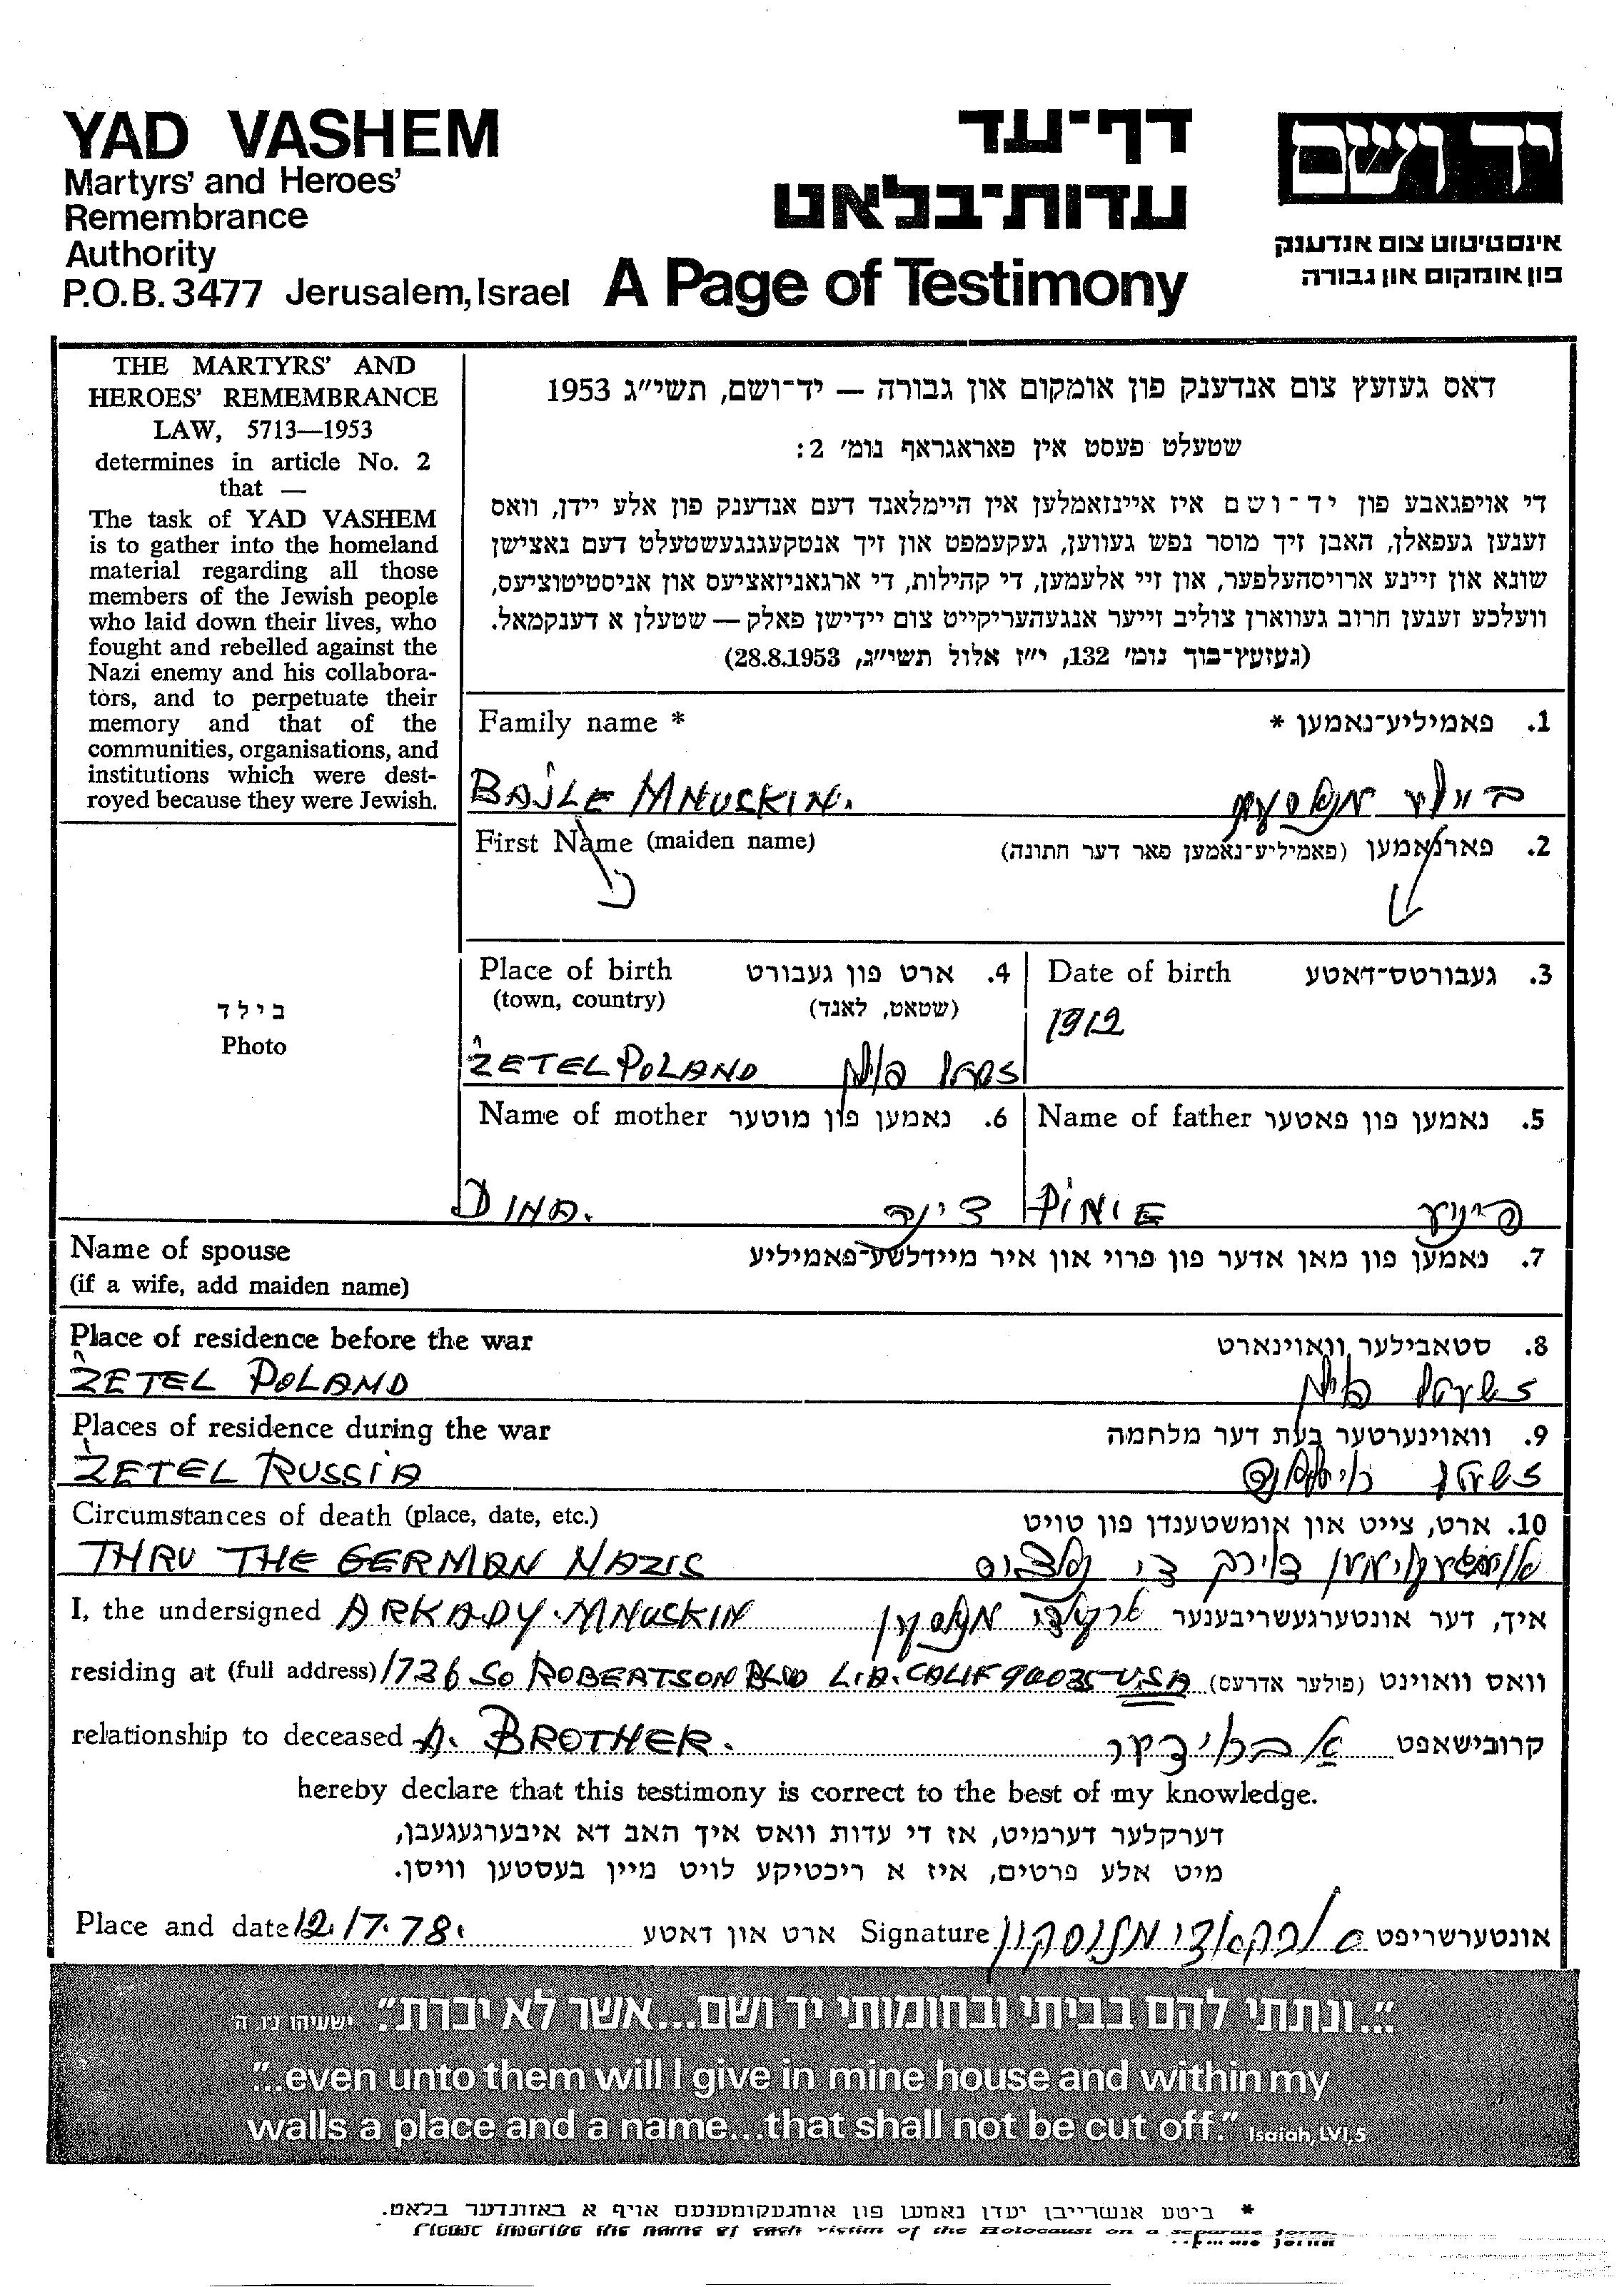 YAD VASHEM
Martyrs' and Heroes'
Remembrance
Authority
P.O.B. 3477 Jerusalem, Israel
דף־עד
עדות־בלאט
A Page of Testimony
יד ושם
אינסטיטוט צום אנדענק
פון אומקום און גבורה
THE MARTYRS' AND
HEROES' REMEMBRANCE
LAW, 5713—1953
determines in article No. 2
that —
The task of YAD VASHEM
is to gather into the homeland
material regarding all those
members of the Jewish people
who laid down their lives, who
fought and rebelled against the
Nazi enemy and his collabora-
tors, and to perpetuate their
memory and that of the
communities, organisations, and
institutions which were dest-
royed because they were Jewish.
דאס געזעץ צום אנדענק פון אומקום און גבורה — יד־ושם, תשי״ג 1953
שטעלט פעסט אין פאראגראף נומ׳ 2:
די אויפגאבע פון יד־ושם איז איינזאמלען אין היימלאנד דעם אנדענק פון אלע יידן, וואס
זענען געפאלן, האבן זיך מוסר נפש געווען, געקעמפט און זיך אנטקעגנגעשטעלט דעם נאצישן
שונא און זיינע ארויסהעלפער, און זיי אלעמען, די קהילות, די ארגאניזאציעס און אניסטיטוציעס,
וועלכע זענען חרוב געווארן צוליב זייער אנגעהעריקייט צום יידישן פאלק — שטעלן א דענקמאל.
(געזעץ־בוך נומ׳ 132, י״ז אלול תשי״ג, 28.8.1953)
Family name *
1. פאמיליע־נאמען *
BAJLE MNUSKIN.
ביילע
First Name (maiden name)
2. פארנאמען (פאמיליע־נאמען פאר דער חתונה)
בילד
Photo
Place of birth
(town, country)
4. ארט פון געבורט
(שטאט, לאנד)
ZETEL POLAND
פוילן
Date of birth
3. געבורטס־דאטע
1912
Name of mother 6. נאמען פון מוטער
DINA. דינה
Name of father 5. נאמען פון פאטער
PINIE פיניע
Name of spouse
(if a wife, add maiden name)
7. נאמען פון מאן אדער פון פרוי און איר מיידלשע־פאמיליע
Place of residence before the war
8. סטאבילער וואוינארט
ZETEL POLAND
פוילן
Places of residence during the war
9. וואוינערטער בעת דער מלחמה
ZETEL RUSSIA
Circumstances of death (place, date, etc.)
10. ארט, צייט און אומשטענדן פון טויט
THRU THE GERMAN NAZIS
אומגעקומען דורך די נאציס
I, the undersigned ARKADY MNUSKIN
ארקאדי איך, דער אונטערגעשריבענער
residing at (full address) 1736 SO ROBERTSON BLVD L.A. CALIF 90035 USA וואס וואוינט (פולער אדרעס)
relationship to deceased A. BROTHER.
קרובישאפט א ברידער
hereby declare that this testimony is correct to the best of my knowledge.
דערקלער דערמיט, אז די עדות וואס איך האב דא איבערגעגעבן,
מיט אלע פרטים, איז א ריכטיקע לויט מיין בעסטען וויסן.
Place and date 12.17.78. ארט און דאטע
Signature ארקאדי מנוסקין אונטערשריפט
"...ונתתי להם בביתי ובחומותי יד ושם...אשר לא יכרת". ישעיהו נ״ו ה
"...even unto them will I give in mine house and within my
walls a place and a name...that shall not be cut off." Isaiah, LVI,5
* ביטע אנשרייבן יעדן נאמען פון אומגעקומענעם אויף א באזונדער בלאט.
Please inscribe the name of each victim of the Holocaust on a separate form.